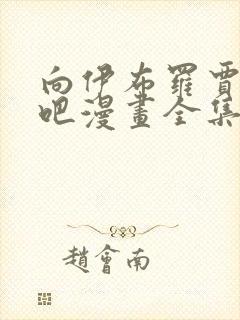 向伊布羅賈
吧漫畫全集
趙會南